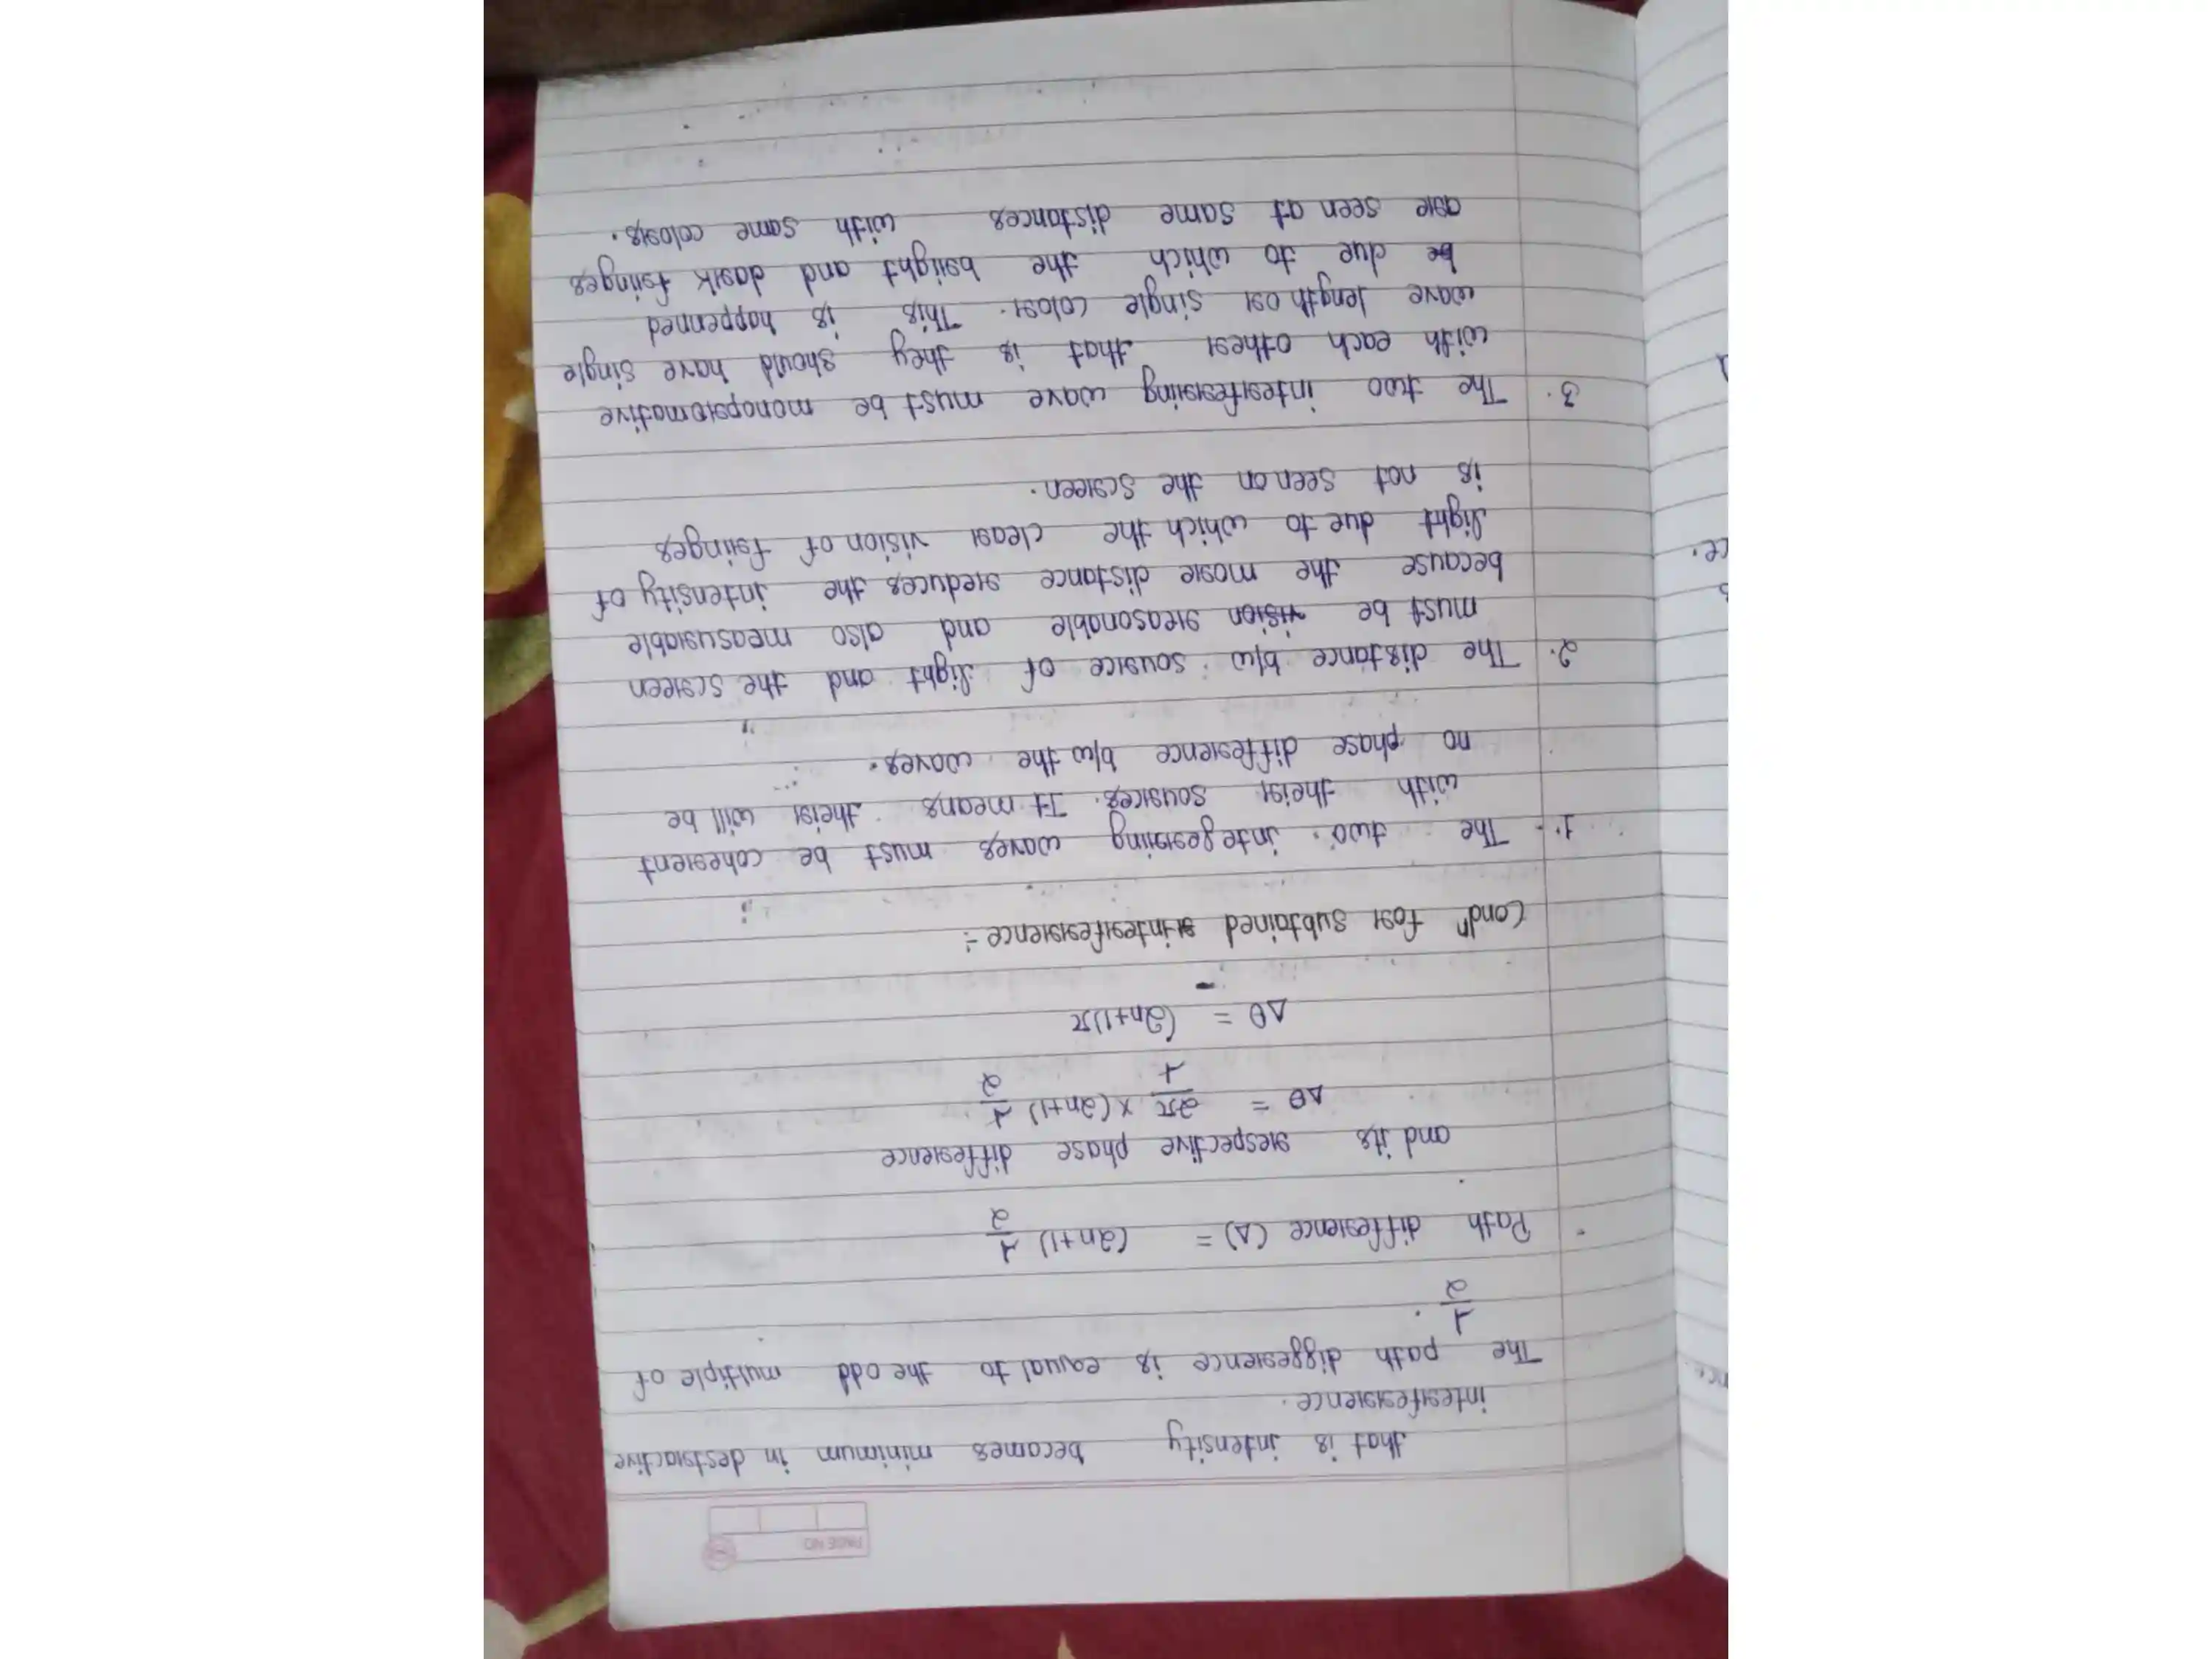 PAGE NO
that is intensity becomes minimum in destractive
interferrence.
The path diggerence is equal to the odd multiple of
λ/2.
Path difference (Δ) = (2n+1) λ/2
and its respective phase difference
Δθ = 2π/λ × (2n+1) λ/2
Δθ = (2n+1)π
Condⁿ for substained interferrence ÷
1. The two integerring waves must be coherent
with their sources. It means their will be
no phase difference b/w the waves.
2. The distance b/w source of light and the screen
must be vision reasonable and also measurable
because the more distance reduces the intensity of
light due to which the clear vision of fringes
is not seen on the screen.
3. The two interferring wave must be monopromative
with each other that is they should have single
wave length or single color. This is happenned
be due to which the bright and dark fringes
are seen at same distances with same colors.